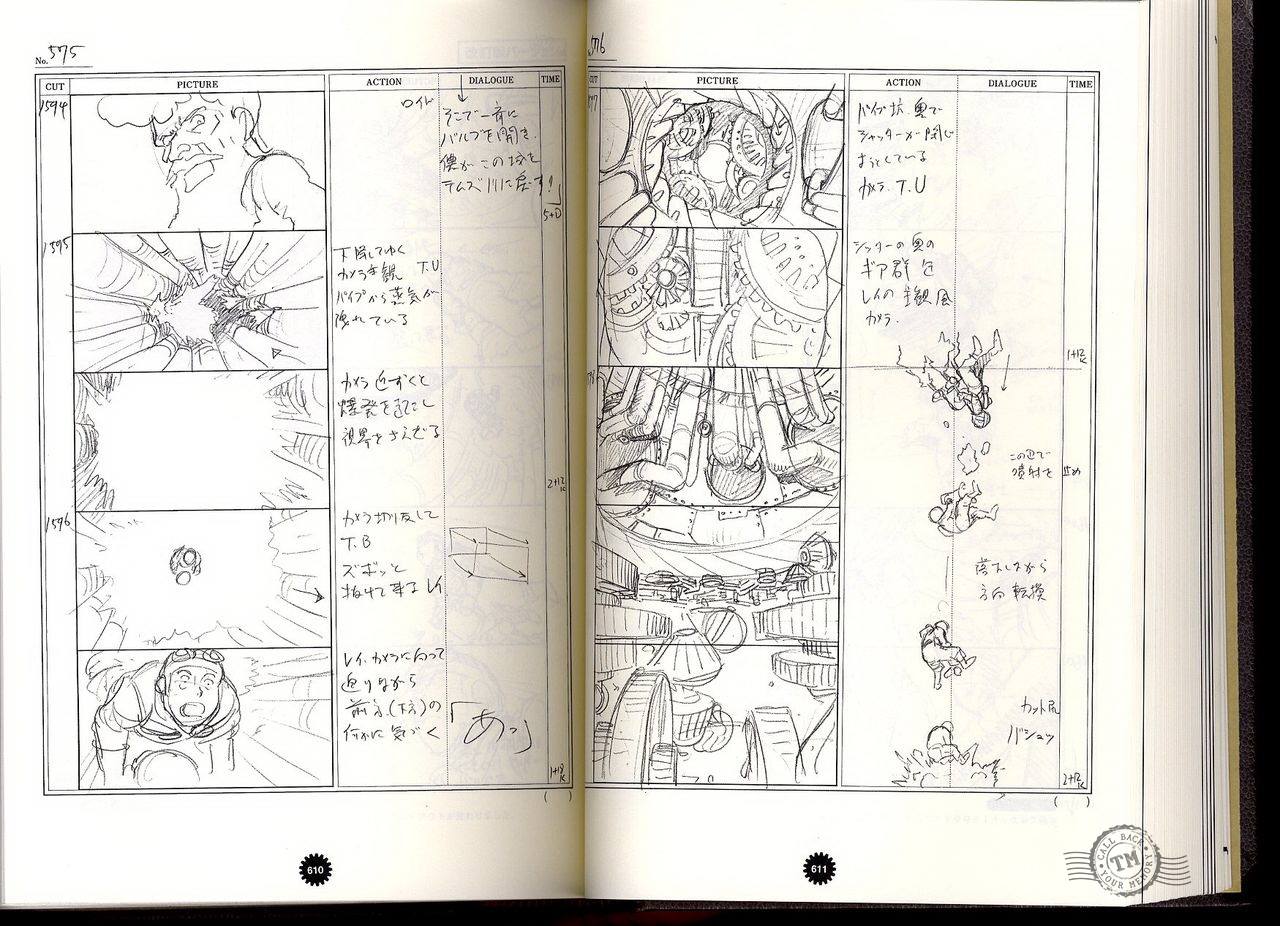 No. 575
CUT
PICTURE
ACTION
DIALOGUE
TIME
1594
ロイド
そこで一斉に
バルブを開き
僕がこの城を
テムズ川に戻す!
5+0
1595
下降してゆく
カメラ主観 T.U
パイプから蒸気が
洩れている
カメラ近ずくと
爆発を起こし
視界をさえぎる
2+12
K
1596
カメラ切り返して
T.B
ズボッと
抜けて来るレイ
レイ、カメラに向って
迫りながら
前方(下方)の
何かに気づく
「あっ」
1+18
K
( )
610
576
CUT
PICTURE
ACTION
DIALOGUE
TIME
パイプ坑 奥で
シャッターが閉じ
ようとしている
カメラ T.U
シャッターの奥の
ギア群を
レイの主観風
カメラ.
1+12
K
この辺で
噴射を止め
落下しながら
方向転換
カット尻
バシュッ
2+12
K
( )
611
CALL BACK
TM
YOUR MEMORY